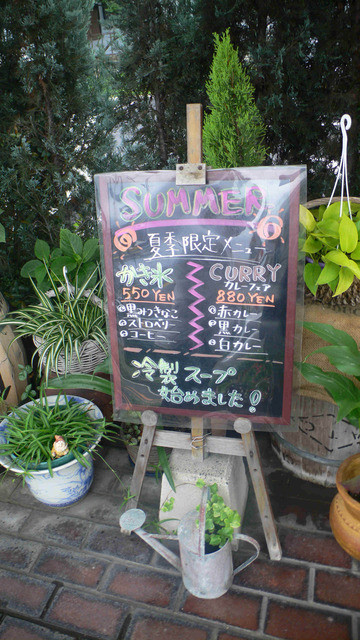 SUMMER
夏季限定メニュー
かき氷
550 YEN
①黒みつきなこ
②ストロベリー
③コーヒー
CURRY
カレーフェア
880 YEN
①赤カレー
②黒カレー
③白カレー
冷製スープ
始めました!